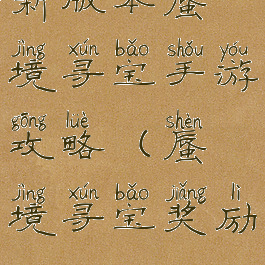 新版本蜃
jìng xún bǎo shǒu yóu
境寻宝手游
gōng lüè shèn
攻略（蜃
jìng xún bǎo jiǎng lì
境寻宝奖励